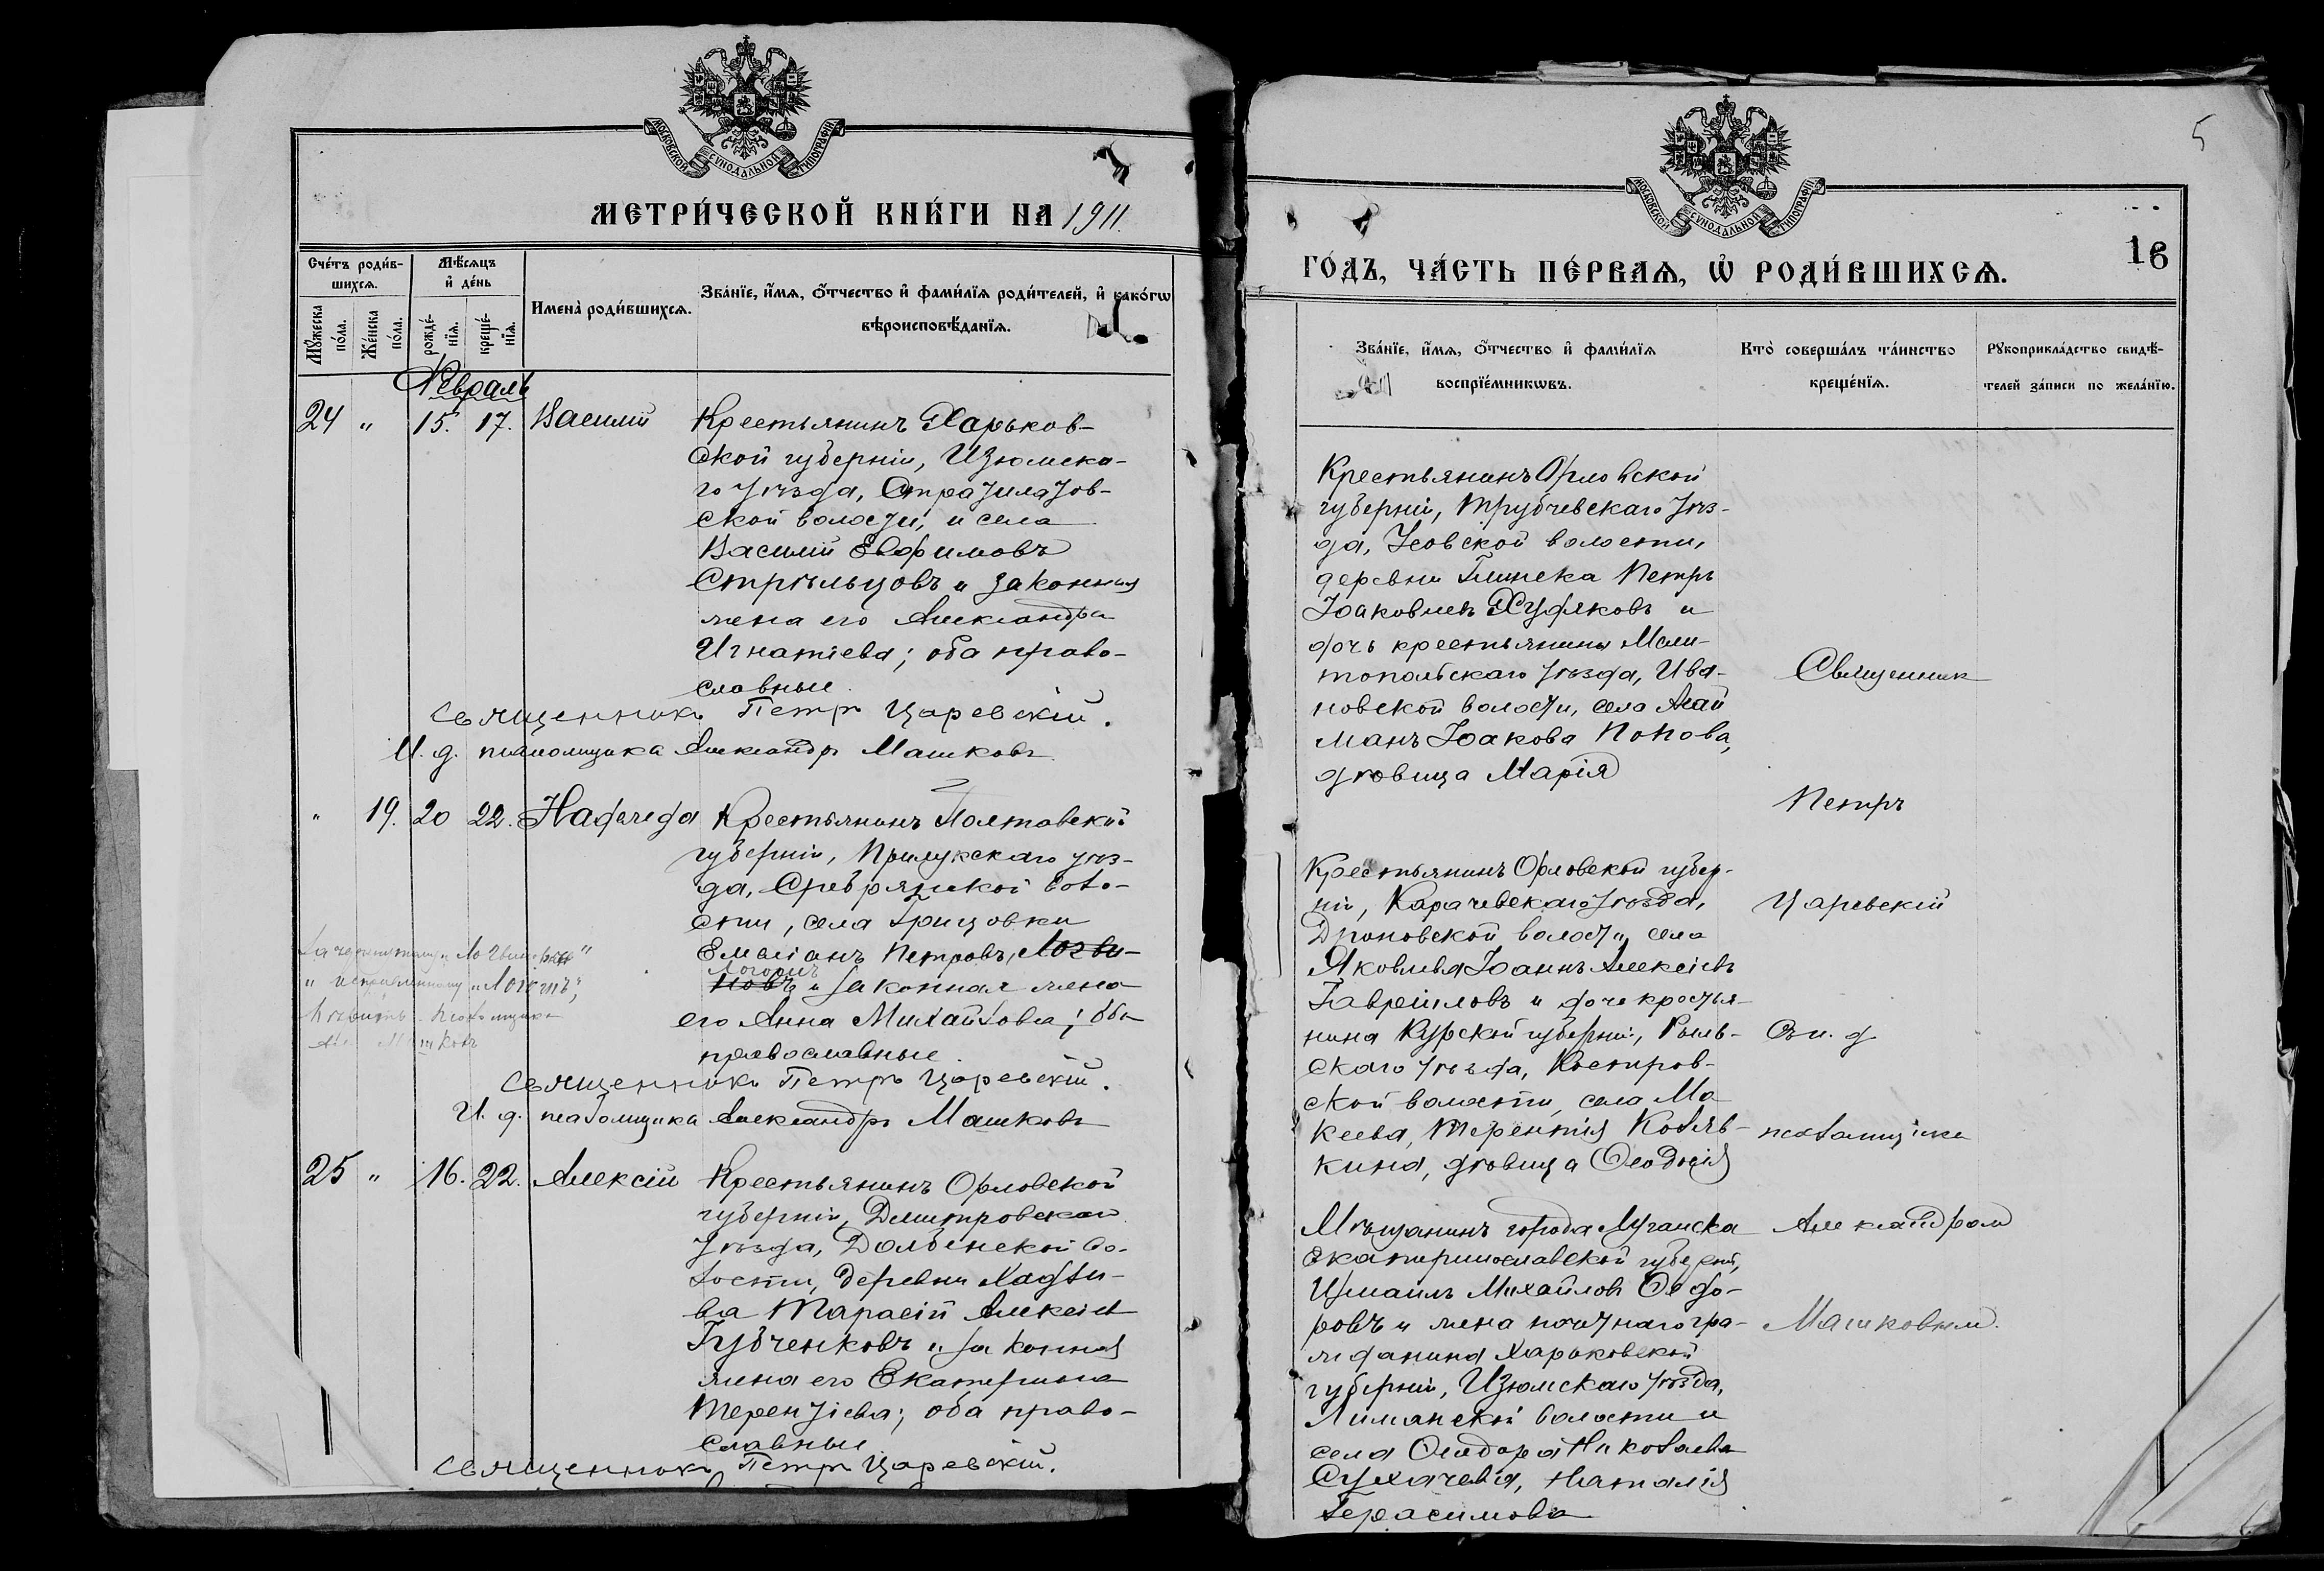 МОСКОВСКОЙ СѴНОДАЛЬНОЙ ТИПОГРАФІИ
МЕТРИ́ЧЕСКОЙ КНИ́ГИ НА 1911.
Счéтъ роди́в-
шихсѧ.
Мꙋ́жеска
по́ла.
Же́нска
по́ла.
Мѣ́сѧцъ
и҆ де́нь
рожде́-
нїѧ.
креще́-
нїѧ.
И҆мена̀ роди́вшихсѧ.
Зва́нїе, и҆́мѧ, ѻ҆́тчество и҆ фами́лїѧ роди́телей, и҆ како́гѡ
вѣроисповѣ́данїѧ.
Февраль
24 " 15. 17. Василій
Крестьянинъ Харьков-
ской губерніи, Изюмска-
го уѣзда,
ской волости, и села
Василій Евфимовъ
Стрѣльцовъ и законная
жена его Александра
Игнатіева; оба право-
славные.
Священникъ Петръ Царевскій.
И. д. псаломщика Александръ Машковъ
" 19. 20 22. Надежда
Крестьянинъ Полтавской
губерніи, Прилукскаго уѣз-
да, воло-
сти, села Грицовки
Емеліанъ Петровъ, Логви-
новъ и законная жена
его Анна Михайлова; оба
православные.
Священникъ Петръ Царевскій.
И. д. псаломщика Александръ Машковъ
25 " 16. 22. Алексій
Крестьянинъ Орловской
губерніи, Дмитровскаго
уѣзда, Долбенской во-
лости, деревни
Тарасій Алексіевъ
Губченковъ и законная
жена его Екатерина
Терентіева; оба право-
славные
Священникъ Петръ Царевскій.
5
МОСКОВСКОЙ СѴНОДАЛЬНОЙ ТИПОГРАФІИ
16
ГО́ДЪ, ЧА́СТЬ ПЕ́РВАѦ, Ѡ҆ РОДИ́ВШИХСѦ.
Зва́нїе, и҆́мѧ, ѻ҆́тчество и҆ фами́лїѧ
воспрїе́мникѡвъ.
Кто̀ соверша́лъ та́инство
креще́нїѧ.
Рꙋкоприкла́дство свидѣ́-
телей за́писи по жела́нїю.
Крестьянинъ Орловской
губерніи, Трубчевскаго уѣз-
да, Усовской волости,
деревни Глинска Петръ
Іаковлевъ Худяковъ и
дочь крестьянина Мели-
топольскаго уѣзда, Ива-
новской волости, села Агай
манъ Іакова Попова,
дѣвица Марія
Крестьянинъ Орловской губер-
ніи, Карачевскаго уѣзда,
Дроновской волости, села
Яковлева Іоаннъ Алексіевъ
Гавриловъ и дочь крестья-
нина Курской губерніи, Рыль-
скаго уѣзда, Костров-
ской волости, села Ма
кеева, Терентія
кина, дѣвица Ѳеодосія
Мѣщанинъ города Луганска
Екатеринославской губерніи,
Измаилъ Михайловъ Ѳедо-
ровъ и жена почетнаго гра-
жданина Харьковской
губерніи, Изюмскаго уѣзда,
Лиманской волости и
села Ѳеодора Николаева
Сукачева, Наталія
Герасимова
Священник
Петръ
Царевскій
съ и. д
псаломщика
Александром
Машковым.